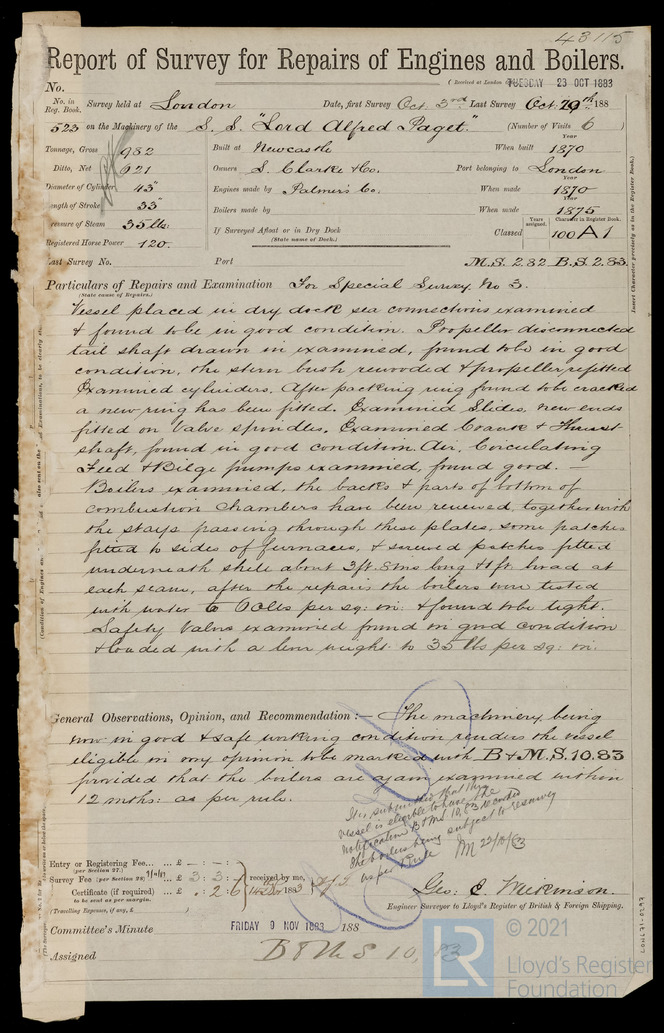 43115
Report of Survey for Repairs of Engines and Boilers.
(Received at London TUESDAY 23 OCT 1883
No.
No. in Reg. Book. Survey held at London Date, first Survey Oct. 3rd Last Survey Oct. 19th 188
523 on the Machinery of the S. S. "Lord Alfred Paget." (Number of Visits 6 )
Tonnage, Gross 982 Built at Newcastle When built 1870
Ditto, Net 621 Owners S. Clarke & Co. Port belonging to London
Diameter of Cylinder 43" Engines made by Palmer's Co. When made 1870
Length of Stroke 33" Boilers made by When made 1875
Pressure of Steam 35 lbs. If Surveyed Afloat or in Dry Dock Classed Years assigned. Character in Register Book. 100 A1
Registered Horse Power 120. (State name of Dock.)
Last Survey No. Port M.S. 2.82 B.S. 2.83.
Particulars of Repairs and Examination For Special Survey No 3.
(State name of Repairs.)
Vessel placed in dry dock sea connections examined
& found to be in good condition. Propeller disconnected
tail shaft drawn in examined, found to be in good
condition, the stern bush rewooded & propeller refitted
Examined cylinders. After packing ring found to be cracked
a new ring has been fitted. Examined Slides, new ends
fitted on Valve spindles, Examined Crank & Thrust
shaft, found in good condition. Air, Circulating
Feed & Bilge pumps examined, found good. —
Boilers examined, the backs & parts of bottom of
combustion Chambers have been renewed, together with
the stays passing through these plates, some patches
fitted to sides of furnaces, & screwed patches fitted
underneath shell about 3ft. 8 ins long & 1 ft. broad at
each seam, after the repairs the boilers were tested
with water to 60 lbs per sq: in: & found to be tight.
Safety Valves examined found in good condition
& loaded with a weight to 35 lbs per sq: in.
General Observations, Opinion, and Recommendation :— The machinery, being
now in good & safe working condition renders the vessel
eligible in my opinion to be marked with B & M.S. 10.83
provided that the boilers are again examined within
12 mths: as per rule.
It is submitted that this
vessel is eligible to have the
notification B & MS 10.83 recorded
the boilers being subject to survey
as per Rule
22/10/83
Entry or Registering Fee... ... £ - : - : -
(per Section 27.)
Survey Fee (per Section 28) £ 3 : 3 : - received by me,
Certificate (if required) .. .. 2 : 6
to be sent as per margin.
(Travelling Expenses, if any, £ )
Engineer Surveyor to Lloyd's Register of British & Foreign Shipping.
Committee's Minute FRIDAY 9 NOV 1883 188
Assigned B & M S 10, 83
Insert Character precisely as in the Register Book.
© 2021
LR
Lloyd's Register
Foundation